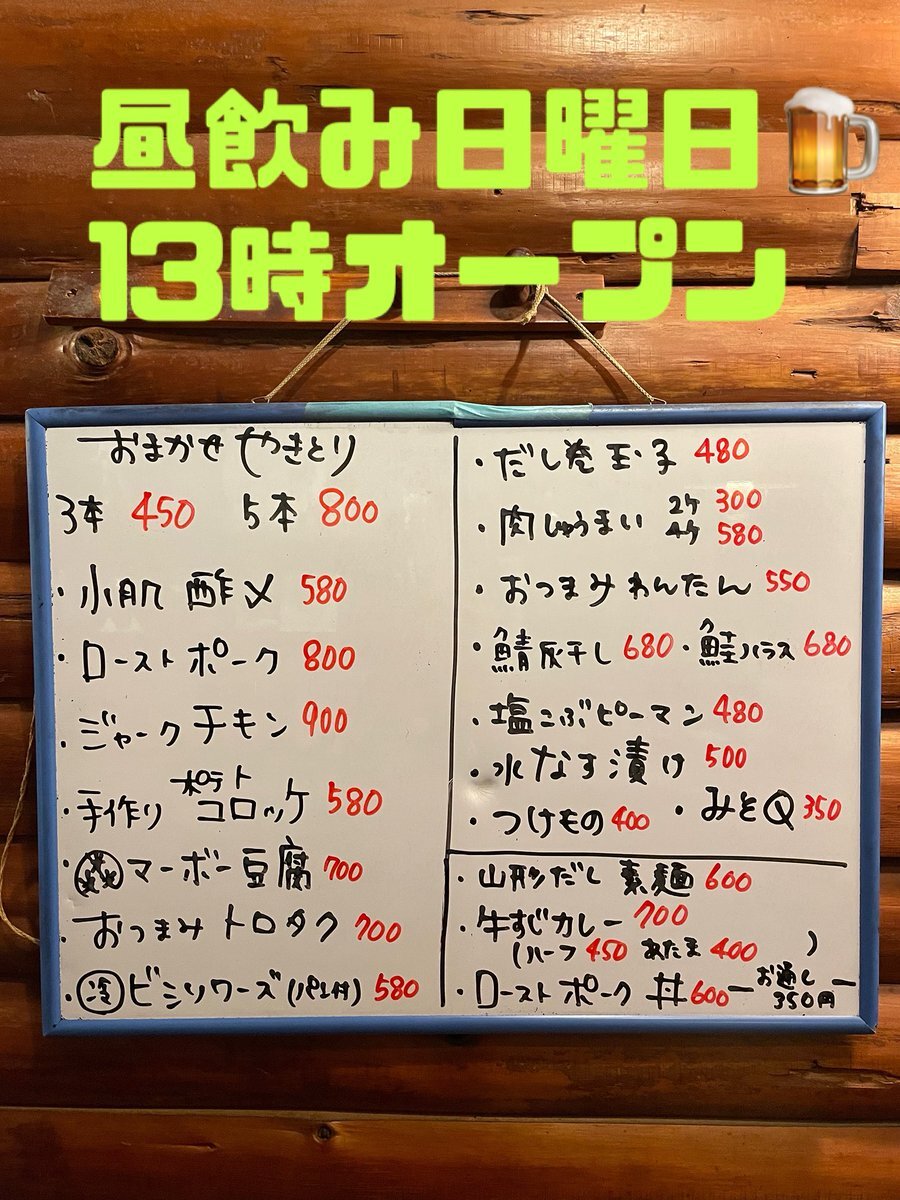 昼飲み日曜日🍺
13時オープン
おまかせ やきとり
3本 450 5本 800
・小肌 酢〆 580
・ローストポーク 800
・ジャークチキン 900
・手作り ポテトコロッケ 580
・マーボー豆腐 700
・おつまみトロタク 700
・冷 ビシソワーズ(パン付) 580
・だし巻玉子 480
・肉しゅうまい 2ケ 300
4ケ 580
・おつまみわんたん 550
・鯖灰干し 680 ・鮭ハラス 680
・塩こぶピーマン 480
・水なす漬け 500
・つけもの 400 ・みそQ 350
・山形だし 素麺 600
・牛すじカレー 700
(ハーフ 450 あたま 400 )
・ローストポーク 丼 600
お通し
350円